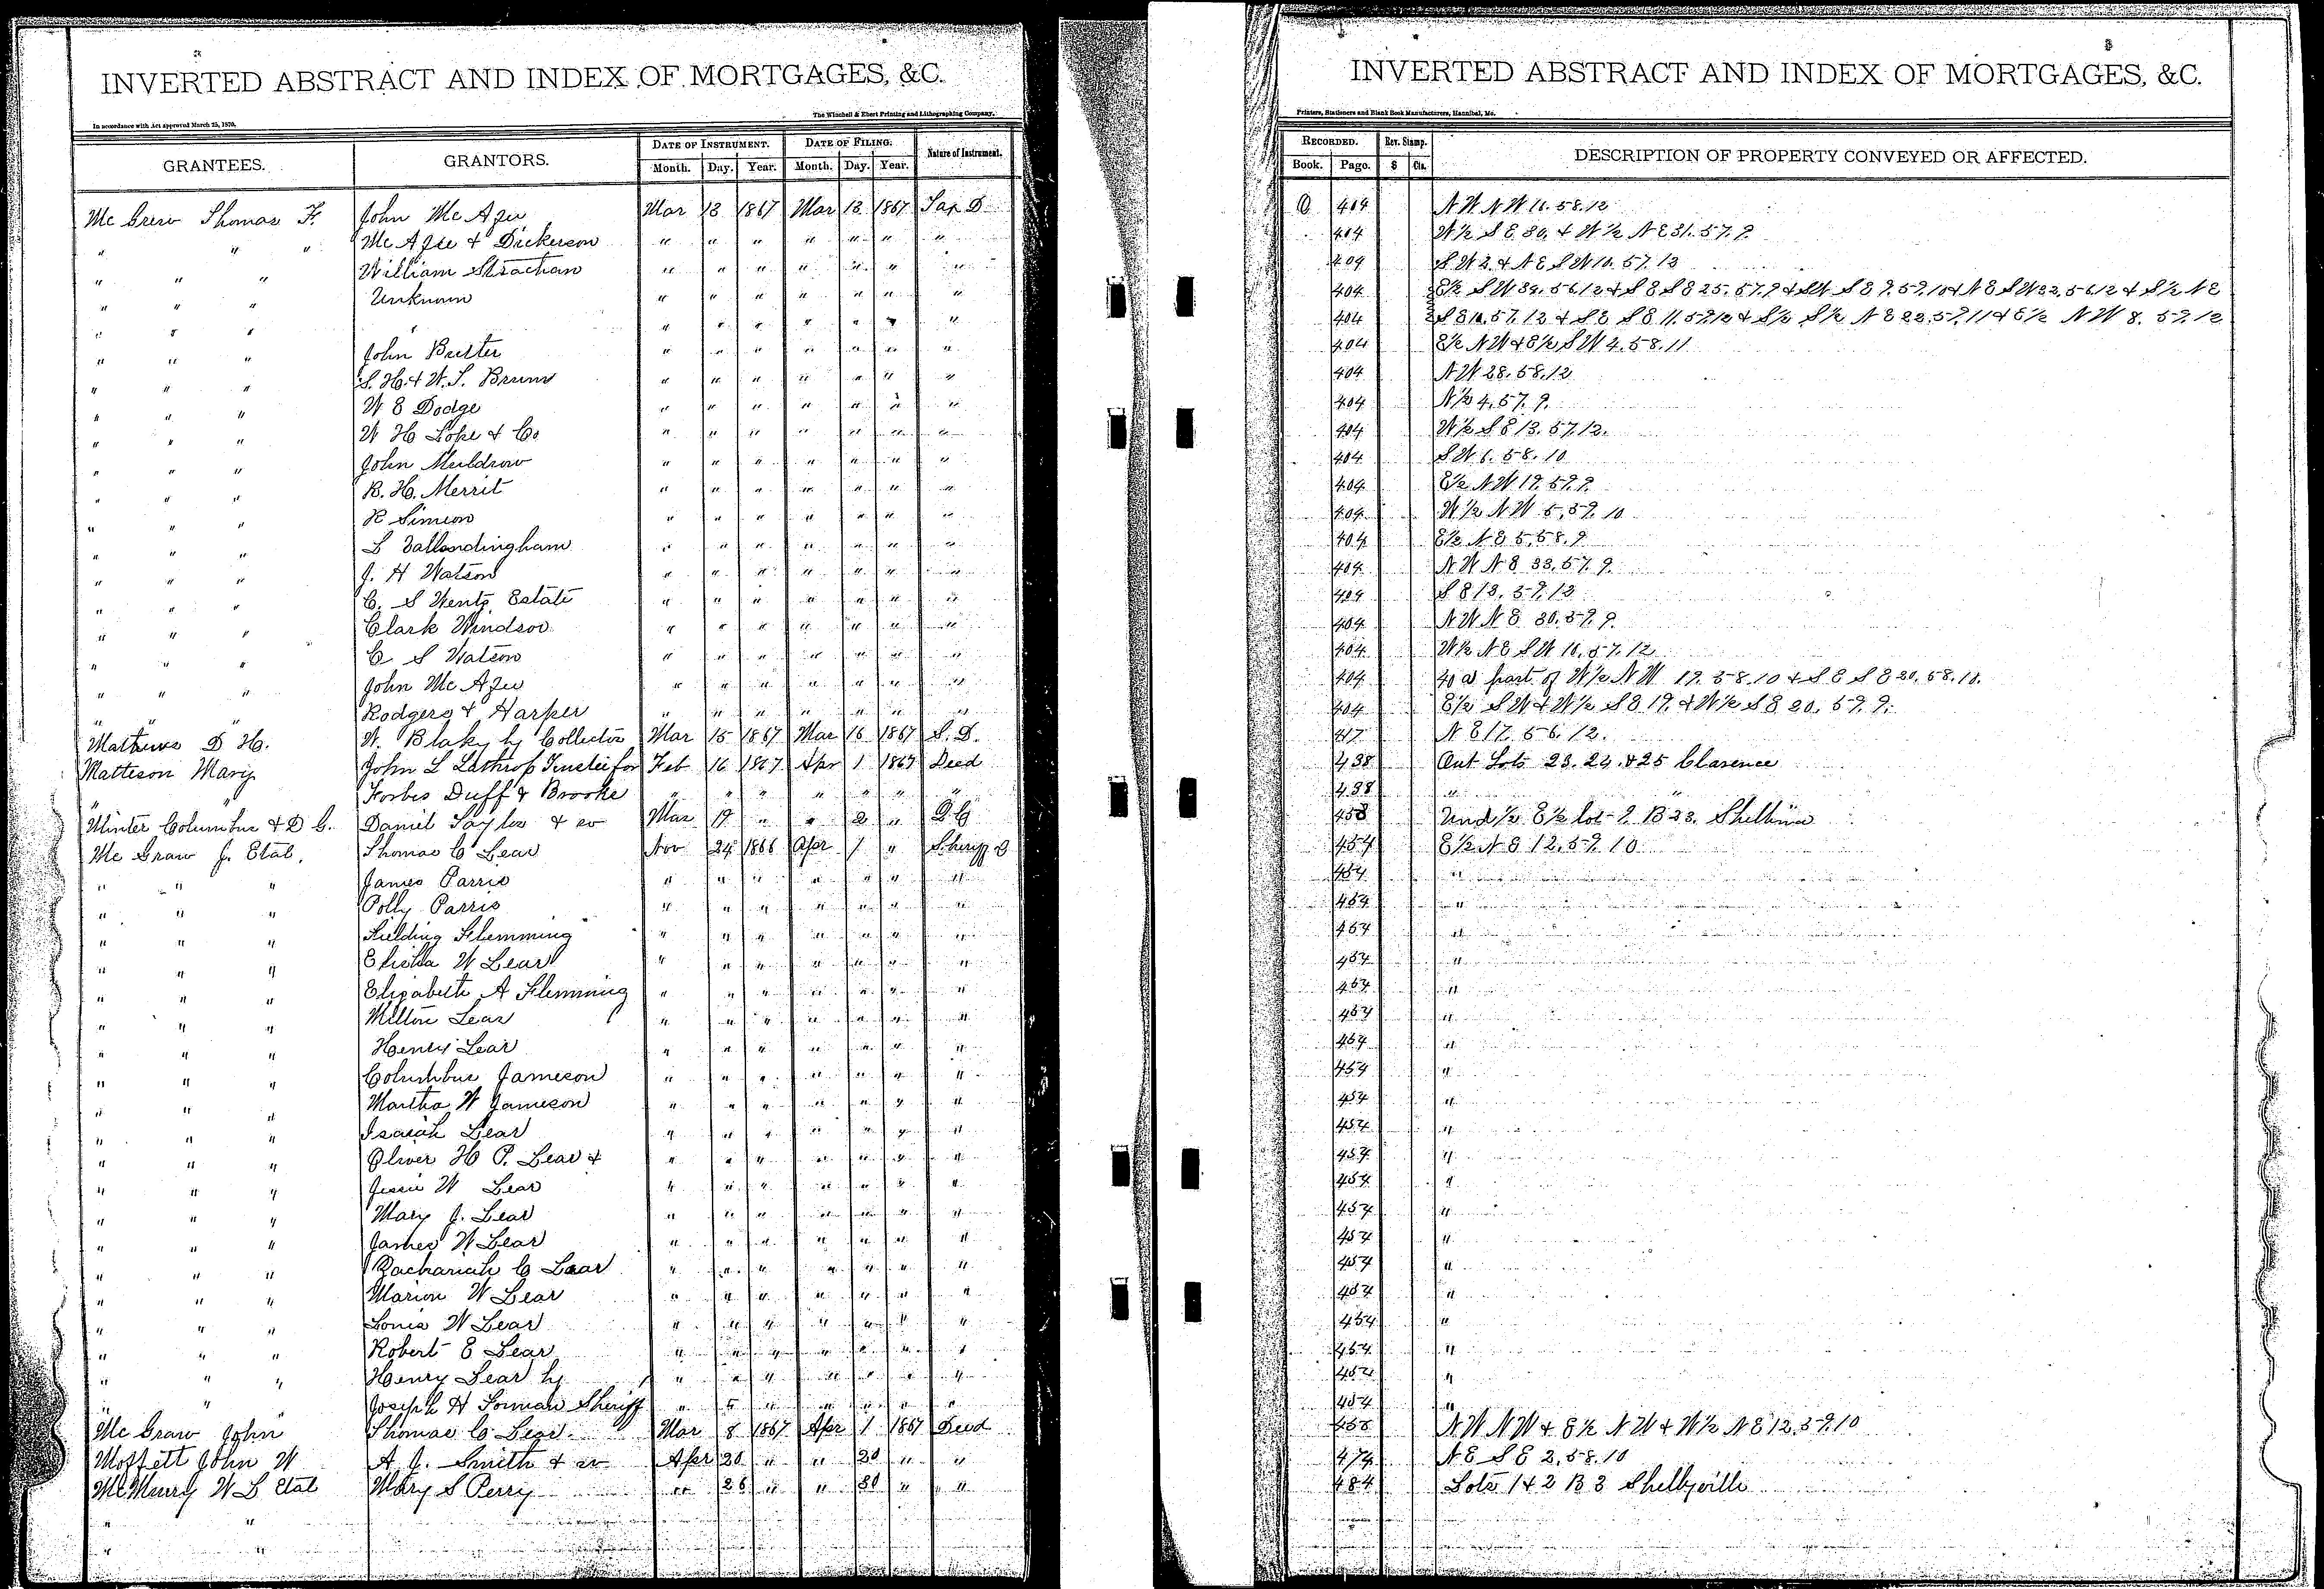 INVERTED ABSTRACT AND INDEX OF MORTGAGES, &C.
In accordance with Act approved March 25, 1870.
The Winchell & Ebert Printing and Lithographing Company,
GRANTEES. GRANTORS. DATE OF INSTRUMENT. DATE OF FILING. Nature of Instrument.
Month. Day. Year. Month. Day. Year.
Mc Grew Thomas F. John Mc Afee Mar 13 1867 Mar 13 1867 Tax D
" " " Mc Afee & Dickerson " " " " " " "
" " " William Strachan " " " " " " "
" " " Unknown " " " " " " "
" " " " " " " " " "
" " " John Butter " " " " " " "
" " " S. H. & W. S. Brum " " " " " " "
" " " W E Dodge " " " " " " "
" " " W H Lope & Co " " " " " " "
" " " John Muldrow " " " " " " "
" " " B. H. Merrit " " " " " " "
" " " R Simeon " " " " " " "
" " " L Vallandingham " " " " " " "
" " " J. H Watson " " " " " " "
" " " C. S Wentz Estate " " " " " " "
" " " Clark Windsor " " " " " " "
" " " C S Watson " " " " " " "
" " " John Mc Afee " " " " " " "
" " " Rodgers & Harper " " " " " " "
Mathews D H. W. Blaky by Collector Mar 15 1867 Mar 16 1867 S. D.
Matteson Mary John L Lathrop Trustee for Feb 16 1867 Apr 1 1867 Deed
" " Forbes Duff & Brooke " " " " " " "
Minter Columbus & D C. Daniel Taylor & w Mar 19 " " 2 " Q C
Mc Graw J. Etal. Thomas C Lear Nov 24 1866 Apr 1 " Sheriff D
" " " James Parris " " " " " " "
" " " Polly Parris " " " " " " "
" " " Fielding Flemming " " " " " " "
" " " Elisha W Lear " " " " " " "
" " " Elizabeth A Flemming " " " " " " "
" " " Milton Lear " " " " " " "
" " " Henry Lear " " " " " " "
" " " Columbus Jameson " " " " " " "
" " " Martha W Jameson " " " " " " "
" " " Isaiah Lear " " " " " " "
" " " Oliver H P. Lear & " " " " " " "
" " " Jessie W Lear " " " " " " "
" " " Mary J. Lear " " " " " " "
" " " James W Lear " " " " " " "
" " " Zachariah C Lear " " " " " " "
" " " Marion W Lear " " " " " " "
" " " Louis W Lear " " " " " " "
" " " Robert E Lear " " " " " " "
" " " Henry Lear by " " " " " " "
" " " Joseph H Forman Sheriff " " " " " " "
Mc Graw John Thomas C Lear Mar 8 1867 Apr 1 1867 Deed
Moffett John W A. J. Smith & w Apr 20 " " 20 " "
McMurry W L Etal Mary S Perry " 26 " " 30 " "
" "
" "
INVERTED ABSTRACT AND INDEX OF MORTGAGES, &C.
Printers, Stationers and Blank Book Manufacturers, Hannibal, Mo.
RECORDED. Rev. Stamp. DESCRIPTION OF PROPERTY CONVEYED OR AFFECTED.
Book. Page. $ Cts.
Q 404 N W N W 16. 58. 12
404 W ½ S E 30. & W ½ N E 31. 57. 9
404 S W 3. & N E S W 10. 57. 12
404 E½ S W 34. 56 12 & S E S E 25. 57. 9 & SW S E 9. 59. 10 & N E S W 32. 56 12 & S½ N E
404 S E 10. 57. 12 & S E S E 11. 57. 12 & S½ S½ N E 22. 59. 11 & E½ N W 8. 59. 12
404 E½ N W & E½ S W 4. 58. 11
404 N W 28. 58. 12
404 N½ 4. 57. 9.
404 W½ S E 13. 57. 12.
404 S W 6. 58. 10
404 E½ N W 19. 59. 9.
404 W½ N W 5. 59. 10
404 E½ N E 5. 58. 9
404 N W N E 33. 57. 9.
404 S E 13. 59. 12
404 N W N E 30. 59. 9.
404 W½ N E S W 10. 57. 12
404 40 a part of W½ N W 19. 58. 10 & S E S E 20. 58. 10.
404 E½ S W & W½ S E 19. & W½ S E 20. 59. 9.
417 N E 17. 56. 12.
438 Out Lots 23. 24. & 25 Clarence
438 "
458 Und ½ E½ lot 9 B 23. Shelbina
454 E½ N E 12. 59. 10
454 "
454 "
454 "
454 "
454 "
454 "
454 "
454 "
454 "
454 "
454 "
454 "
454 "
454 "
454 "
454 "
454 "
454 "
454 "
454 "
458 N W N W & E½ N W & W½ N E 12. 59. 10
474 N E S E 2. 58. 10
484 Lots 1 & 2 B 3 Shelbyville